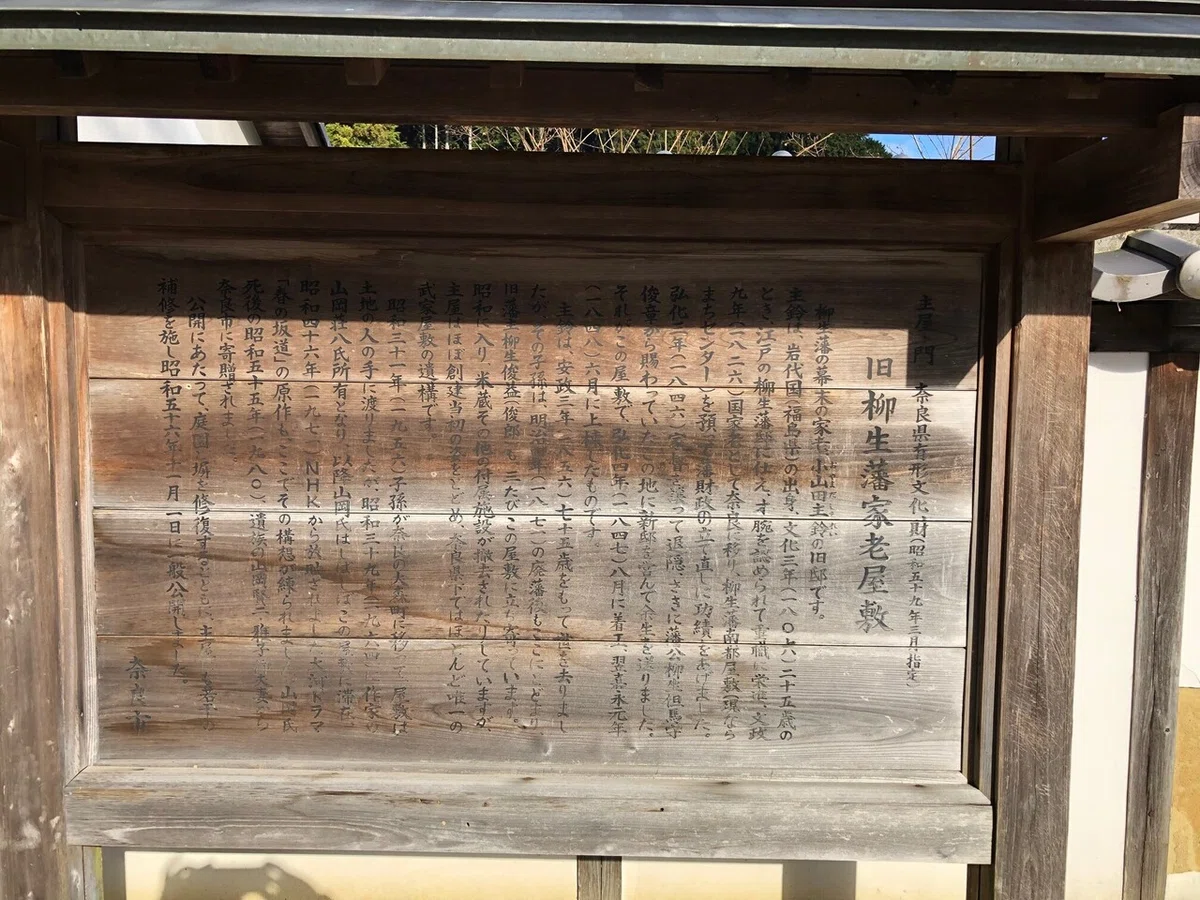 主屋・門 奈良県有形文化財(昭和五十九年三月指定
旧柳生藩家老屋敷
柳生藩の幕末の家老、小山田主鈴の旧邸です。
主鈴は、岩代国(福島県)の出身、文化三年(一八〇六)二十五歳の
とき、江戸の柳生藩邸に仕え、才腕を認められて重職に栄進、文政
九年(一八二六)国家老として奈良に移り、柳生藩南都屋敷(現なら
まちセンター)を預って藩財政の立て直しに功績をあげました。
弘化三年(一八四六)家督を譲って退隠、さきに藩公柳生但馬守
俊章から賜わっていたこの地に新邸を営んで余生を送りました。
それがこの屋敷で、弘化四年(一八四七)八月に着工、翌嘉永元年
(一八四八)六月に上棟したものです。
主鈴は、安政三年(一八五六)七十五歳をもって世を去りまし
たが、その子孫は、明治四年(一八七一)の廃藩後もここにとどまり
旧藩主柳生俊益(俊郎)も二たびこの屋敷に立ち寄っています。
昭和に入り、米蔵その他の付属施設が撤去されたりしていますが、
主屋はほぼ創建当初の姿をとどめ、奈良県下ではほとんど唯一の
武家屋敷の遺構です。
昭和三十一年(一九五六)子孫が奈良の大森町に移って、屋敷は
土地の人の手に渡りましたが、昭和三十九年(一九六四)に作家の
山岡荘八氏所有となり、以降山岡氏はしばしばこの屋敷に滞在、
昭和四十六年(一九七一)NHKから放映されました大河ドラマ
「春の坂道」の原作も、ここでその構想が練られました。山岡氏
死後の昭和五十五年(一九八〇)、遺族の山岡賢二、雅子御夫妻から
奈良市に寄贈されました。
公開にあたって、庭園、塀を修復するとともに、主屋にも若干の
補修を施し昭和五十六年十一月一日に一般公開しました。
奈良市